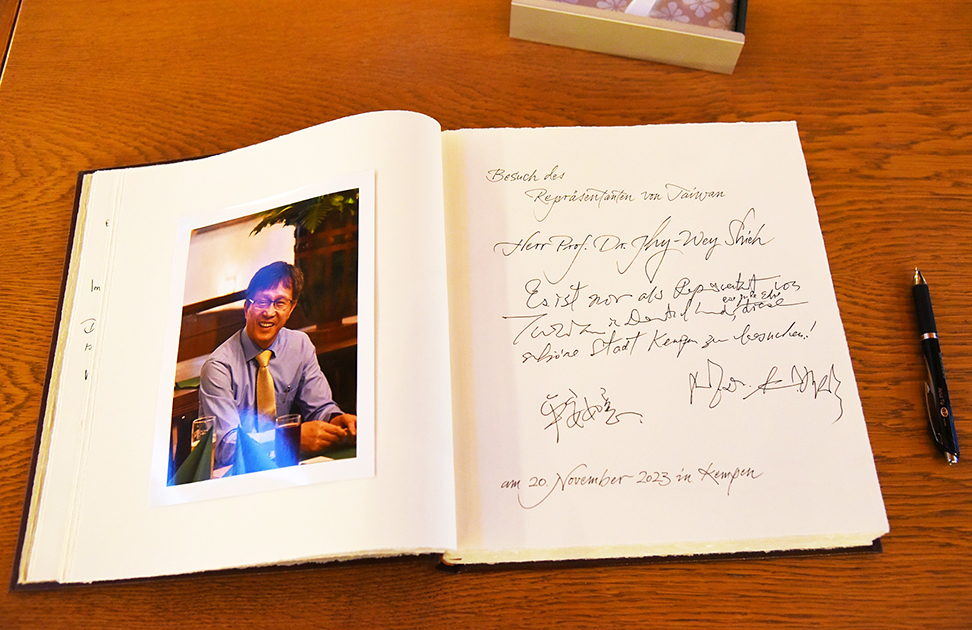 Besuch des
Repräsentanten von Taiwan
Herr Prof. Dr. Jhy-Wey Shieh
Es ist mir als Repräsentant von
Taiwan in Deutschland diese
schöne Stadt Kempen zu besuchen!
am 20. November 2023 in Kempen